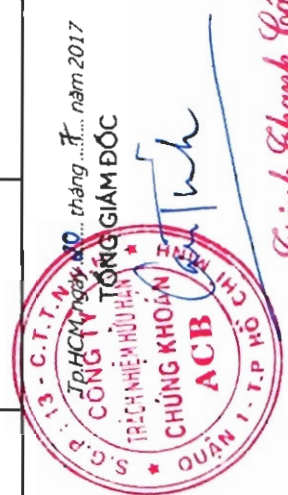 Tp.HCM, ngày 20 tháng 7 năm 2017
TỔNG GIÁM ĐỐC
S.G.P : 13 - C.T.T.N
CÔNG TY
TRÁCH NHIỆM HỮU HẠN
CHỨNG KHOÁN
ACB
QUẬN 1 - T.P HỒ CHÍ MINH